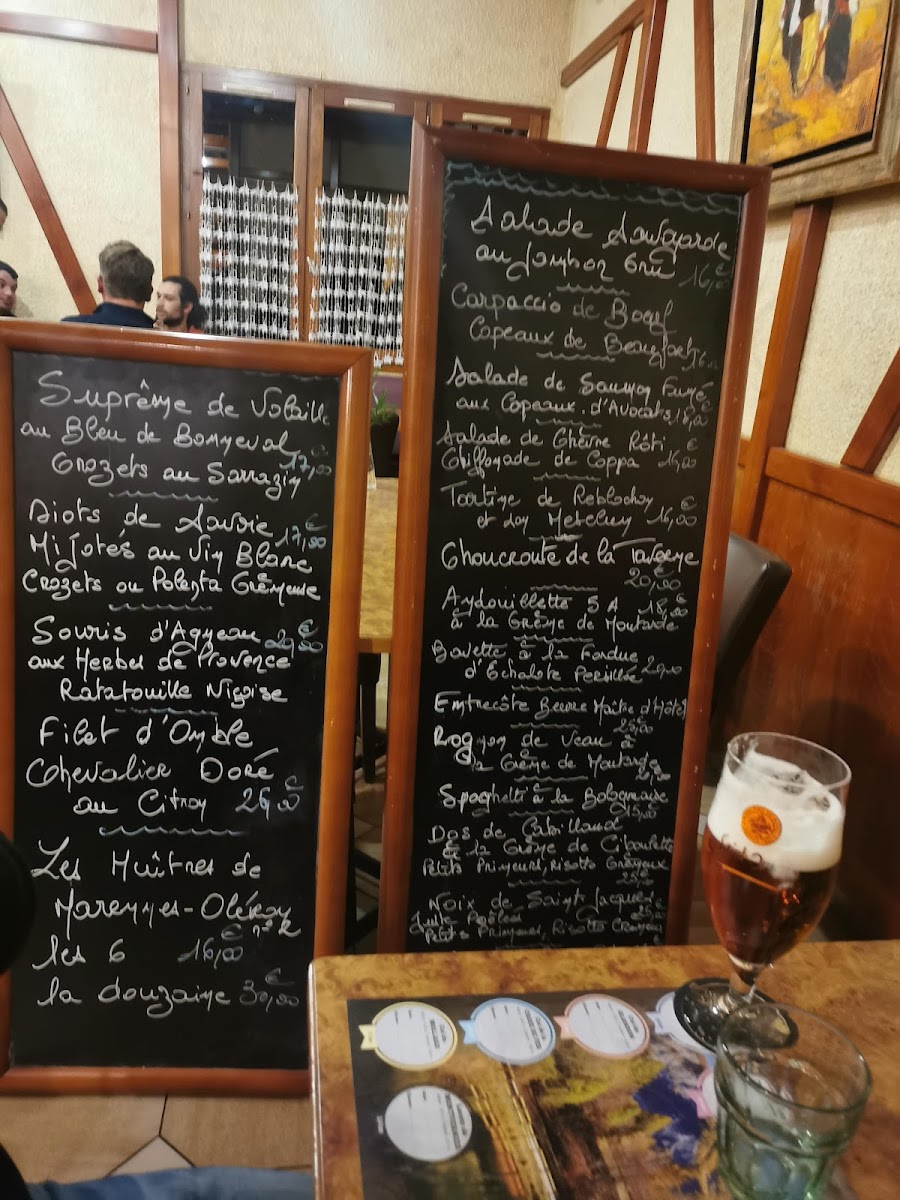 Suprême de Volaille
au Bleu de Bonneval
Crozets au Sarrazin 17,00 €
Diots de Savoie
Mijotés au Vin Blanc 17,00 €
Crozets ou Polenta Crèmeuse
Souris d'Agneau 20,00 €
aux Herbes de Provence
Ratatouille Niçoise
Filet d'Omble
Chevalier Doré
au Citron 26,00 €
Les Huîtres de
Marennes-Oléron
les 6 16,00 € n°2
la douzaine 30,00 €
Salade Savoyarde
au Jambon Cru 16,00 €
Carpaccio de Boeuf
Copeaux de Beaufort 16,00
Salade de Saumon Fumé
aux Copeaux d'Avocats 18,00 €
Salade de Chèvre Rôti
Chiffonnade de Coppa 16,00 €
Tartine de Reblochon
et son Mesclun 16,00 €
Choucroute de la Taverne
20,00 €
Andouillette 5 A 18,00 €
à la Crème de Moutarde
Bavette à la Fondue
d'Echalote Persillée 20,00
Entrecôte Beurre Maître d'Hôtel
25,00
Rognon de Veau à
la Crème de Moutarde
Spaghetti à la Bolognaise
15,00
Dos de Cabillaud
à la Crème de Ciboulette
Petits Primeurs, Risoto Crémeux
25,00
Noix de Saint Jacques
Juste Poêlées 25,00
Petits Primeurs, Risotto Crémeux